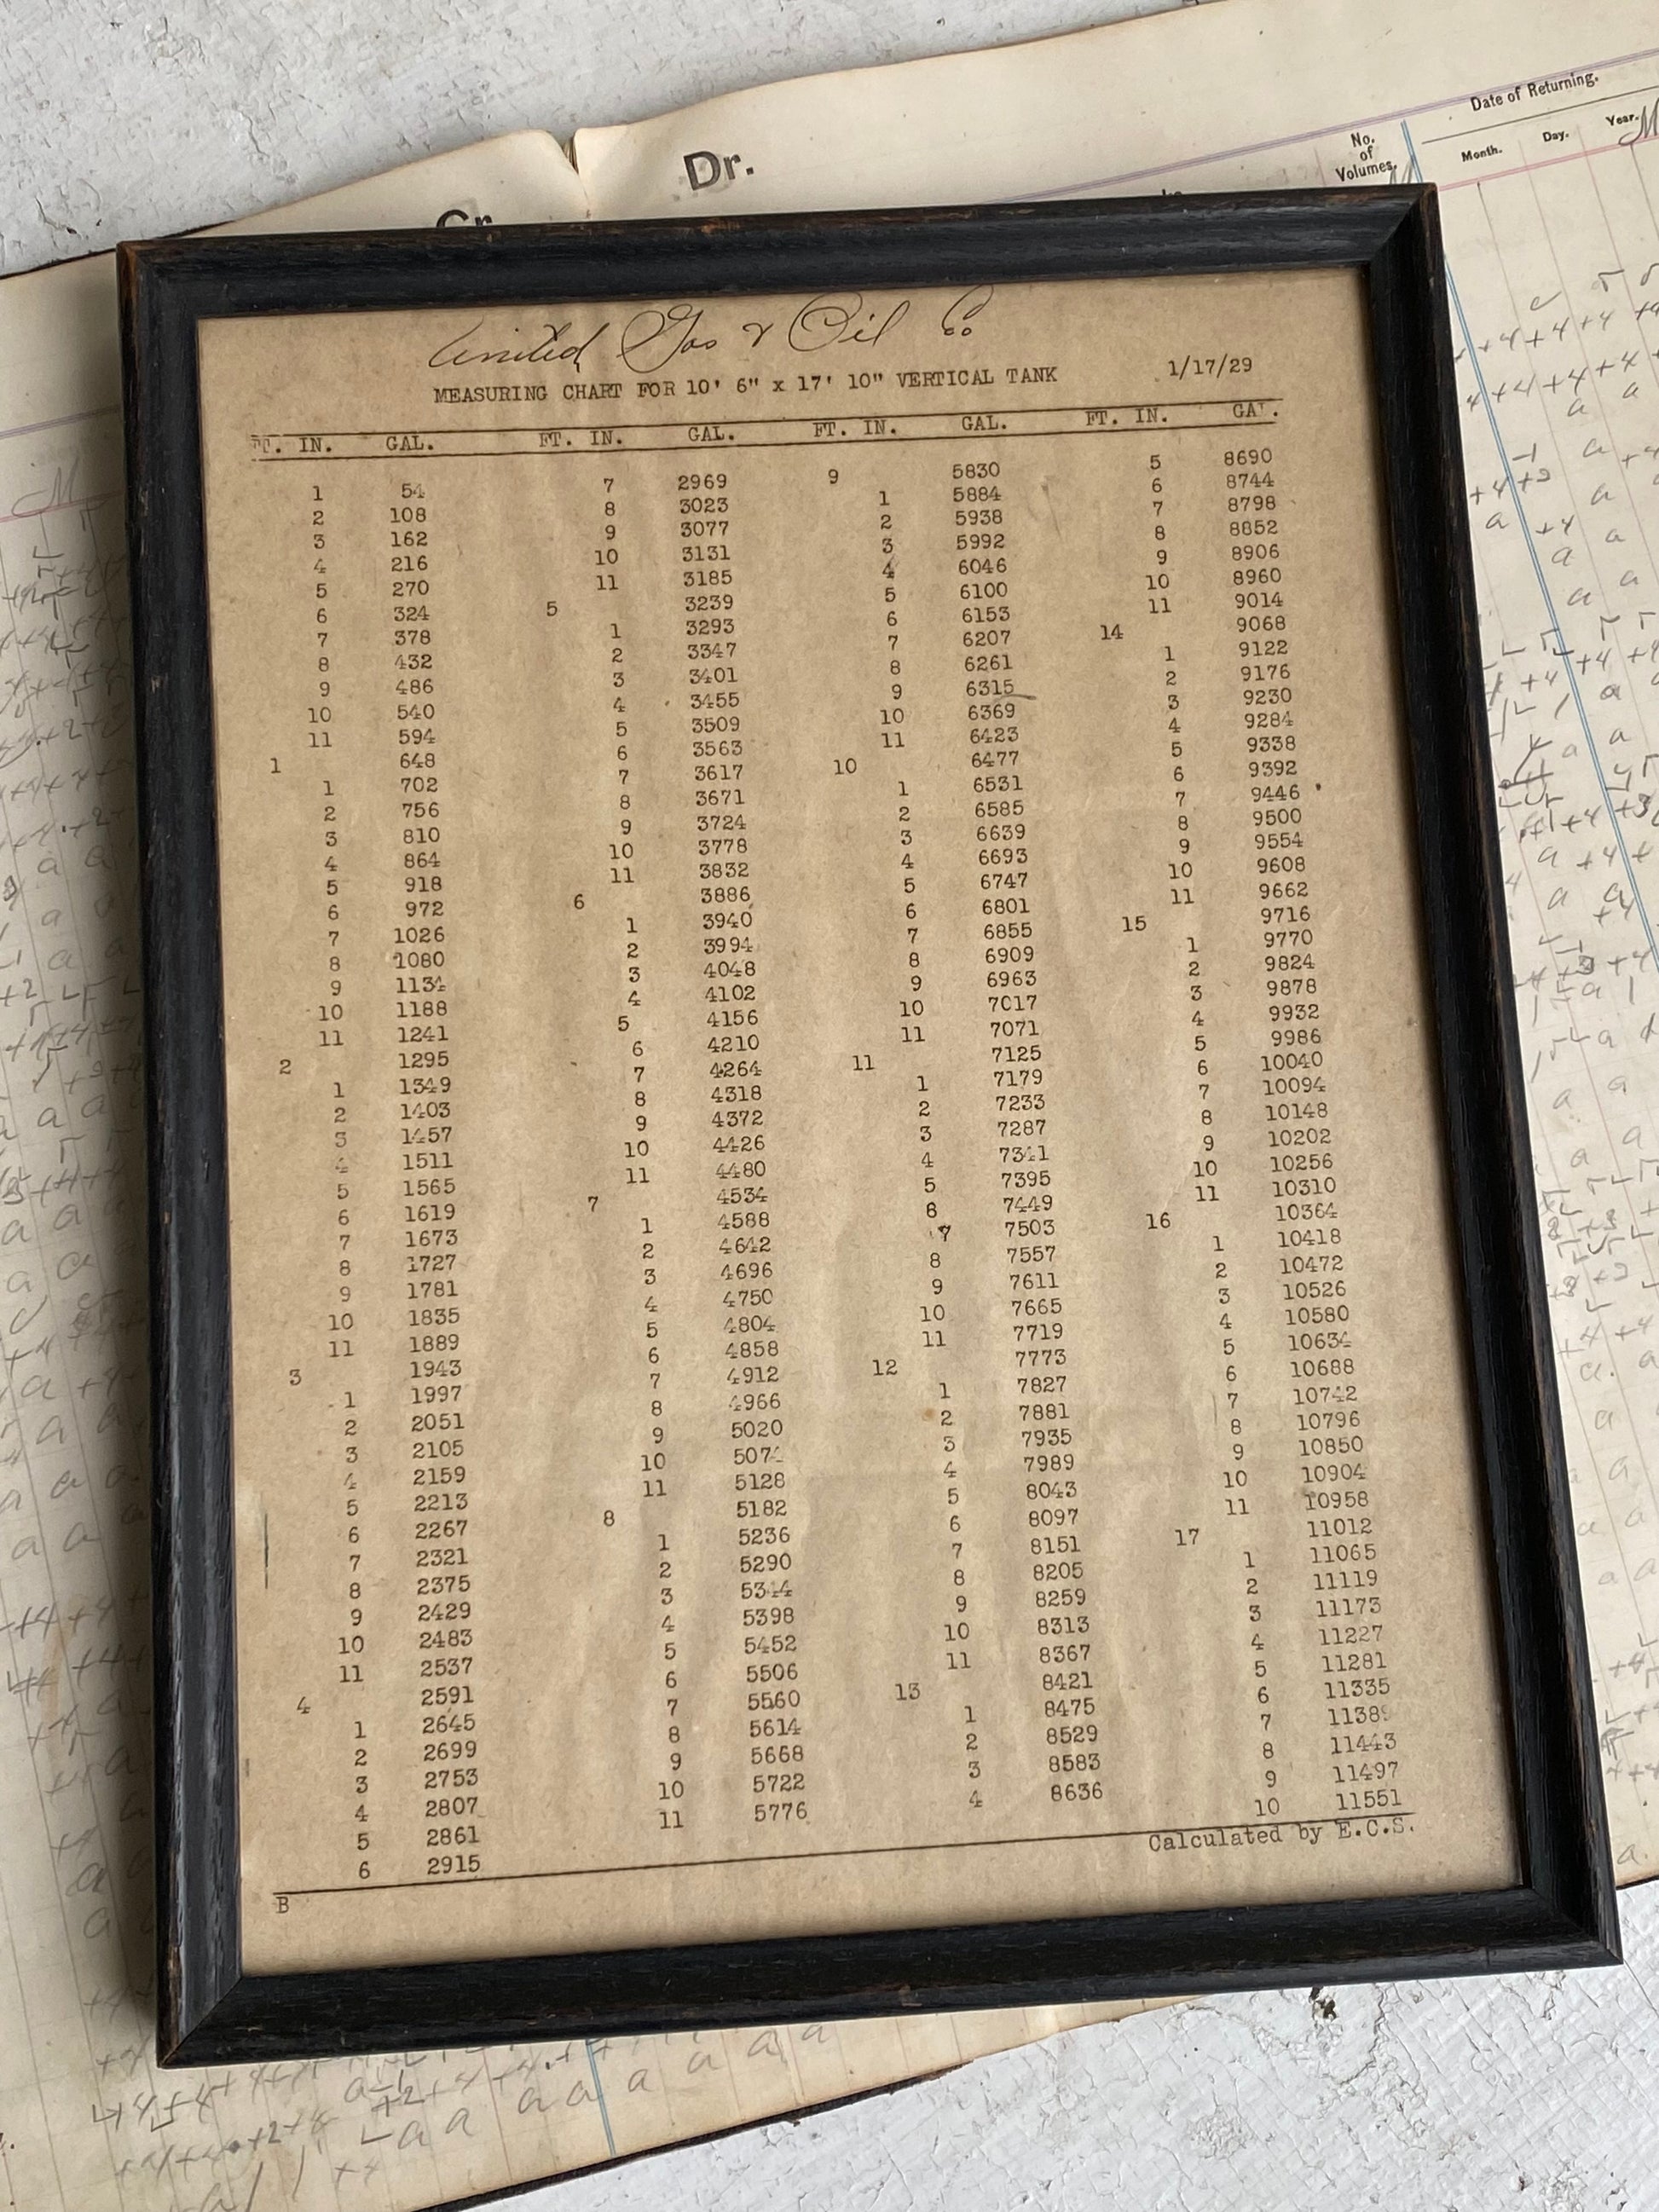 Cr. Dr.
No. of Volumes.
Date of Returning.
Month. Day. Year.
United Gas & Oil Co
MEASURING CHART FOR 10' 6" x 17' 10" VERTICAL TANK 1/17/29
FT. IN. GAL. FT. IN. GAL. FT. IN. GAL. FT. IN. GAL.
1 54 7 2969 9 5830 5 8690
2 108 8 3023 1 5884 6 8744
3 162 9 3077 2 5938 7 8798
4 216 10 3131 3 5992 8 8852
5 270 11 3185 4 6046 9 8906
6 324 5 3239 5 6100 10 8960
7 378 1 3293 6 6153 11 9014
8 432 2 3347 7 6207 14 9068
9 486 3 3401 8 6261 1 9122
10 540 4 3455 9 6315 2 9176
11 594 5 3509 10 6369 3 9230
1 648 6 3563 11 6423 4 9284
1 702 7 3617 10 6477 5 9338
2 756 8 3671 1 6531 6 9392
3 810 9 3724 2 6585 7 9446
4 864 10 3778 3 6639 8 9500
5 918 11 3832 4 6693 9 9554
6 972 6 3886 5 6747 10 9608
7 1026 1 3940 6 6801 11 9662
8 1080 2 3994 7 6855 15 9716
9 1134 3 4048 8 6909 1 9770
10 1188 4 4102 9 6963 2 9824
11 1241 5 4156 10 7017 3 9878
2 1295 6 4210 11 7071 4 9932
1 1349 7 4264 11 7125 5 9986
2 1403 8 4318 1 7179 6 10040
3 1457 9 4372 2 7233 7 10094
4 1511 10 4426 3 7287 8 10148
5 1565 11 4480 4 7341 9 10202
6 1619 7 4534 5 7395 10 10256
7 1673 1 4588 6 7449 11 10310
8 1727 2 4642 7 7503 16 10364
9 1781 3 4696 8 7557 1 10418
10 1835 4 4750 9 7611 2 10472
11 1889 5 4804 10 7665 3 10526
3 1943 6 4858 11 7719 4 10580
1 1997 7 4912 12 7773 5 10634
2 2051 8 4966 1 7827 6 10688
3 2105 9 5020 2 7881 7 10742
4 2159 10 5074 3 7935 8 10796
5 2213 11 5128 4 7989 9 10850
6 2267 8 5182 5 8043 10 10904
7 2321 1 5236 6 8097 11 10958
8 2375 2 5290 7 8151 17 11012
9 2429 3 5344 8 8205 1 11065
10 2483 4 5398 9 8259 2 11119
11 2537 5 5452 10 8313 3 11173
4 2591 6 5506 11 8367 4 11227
1 2645 7 5560 13 8421 5 11281
2 2699 8 5614 1 8475 6 11335
3 2753 9 5668 2 8529 7 11389
4 2807 10 5722 3 8583 8 11443
5 2861 11 5776 4 8636 9 11497
6 2915 10 11551
Calculated by E.C.S.
B